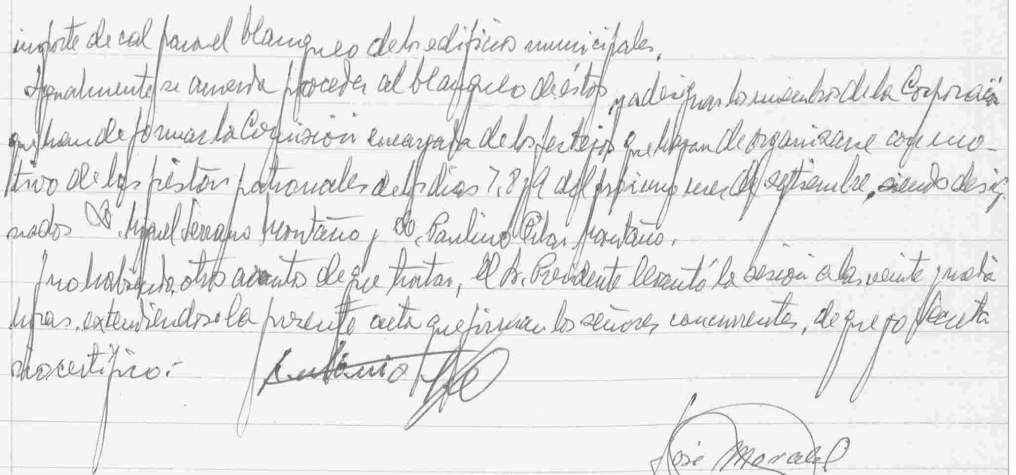 importe de cal para el blanqueo de los edificios municipales.
Igualmente se acuerda proceder al blanqueo de éstos, y a designar los miembros de la Corporación
que han de formar la Comisión encargada de los festejos que hayan de organizarse con mo-
tivo de las fiestas patronales de los días 7, 8 y 9 del próximo mes de septiembre, siendo desig-
nados D. Miguel Serrano Montaño y D. Paulino Pilar Montaño.
Y no habiendo otro asunto de que tratar, el Sr. Presidente levantó la sesión a las veinte y media
horas, extendiéndose la presente acta que firman los señores concurrentes, de que yo Secreta
rio certifico:
Antonio
José Morales